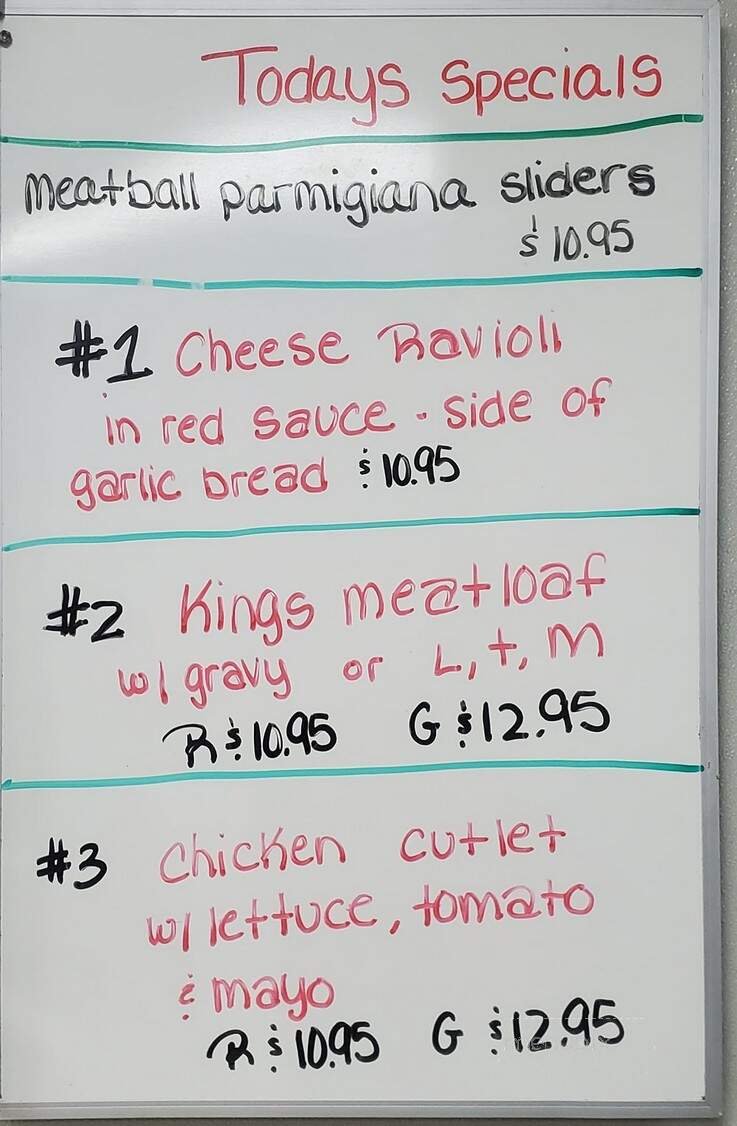 Todays Specials
meatball parmigiana sliders
$10.95
#1 Cheese Ravioli
in red sauce - side of
garlic bread $10.95
#2 Kings meatloaf
w/ gravy or L, t, M
R $10.95 G $12.95
#3 Chicken cutlet
w/ lettuce, tomato
& mayo
R $10.95 G $12.95